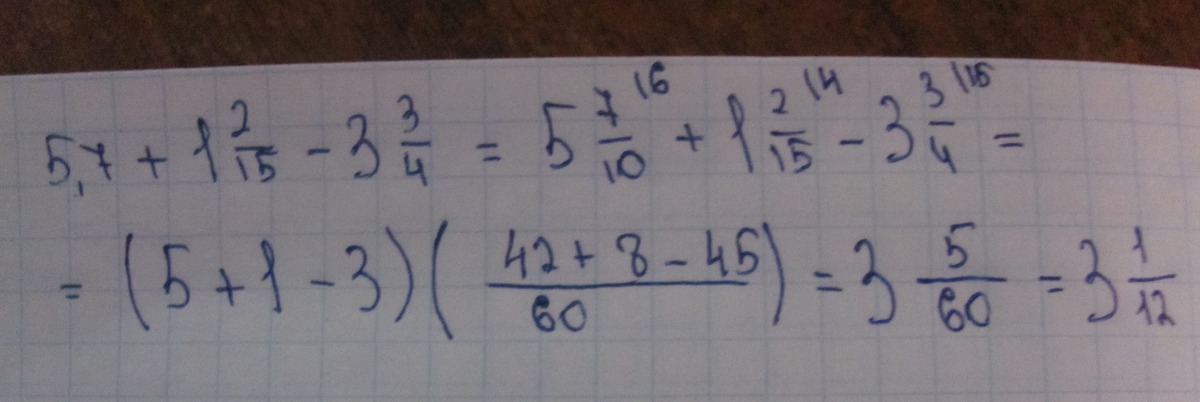 5,7 + 1 2/15 - 3 3/4 = 5 7/10 \6 + 1 2/15 \4 - 3 3/4 \15 =
= (5 + 1 - 3) ( (42 + 8 - 45)/60 ) = 3 5/60 = 3 1/12